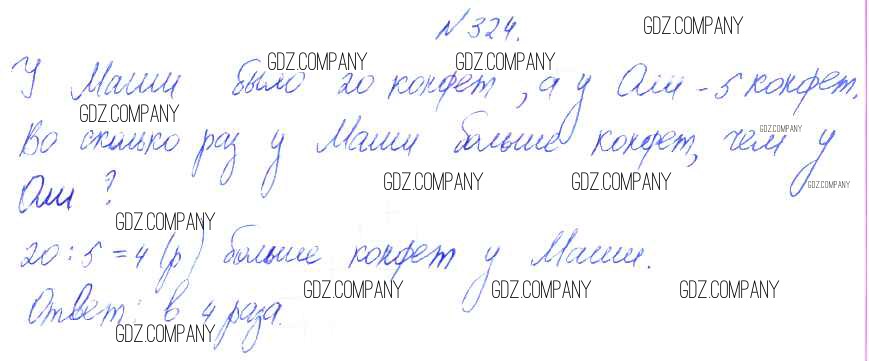 N 324.
У Маши было 20 конфет, а у Оли - 5 конфет.
Во сколько раз у Маши больше конфет, чем у
Оли ?
20 : 5 = 4 (р) больше конфет у Маши.
Ответ: в 4 раза.
GDZ.COMPANY
GDZ.COMPANY
GDZ.COMPANY
GDZ.COMPANY
GDZ.COMPANY
GDZ.COMPANY
GDZ.COMPANY
GDZ.COMPANY
GDZ.COMPANY
GDZ.COMPANY
GDZ.COMPANY
GDZ.COMPANY
GDZ.COMPANY